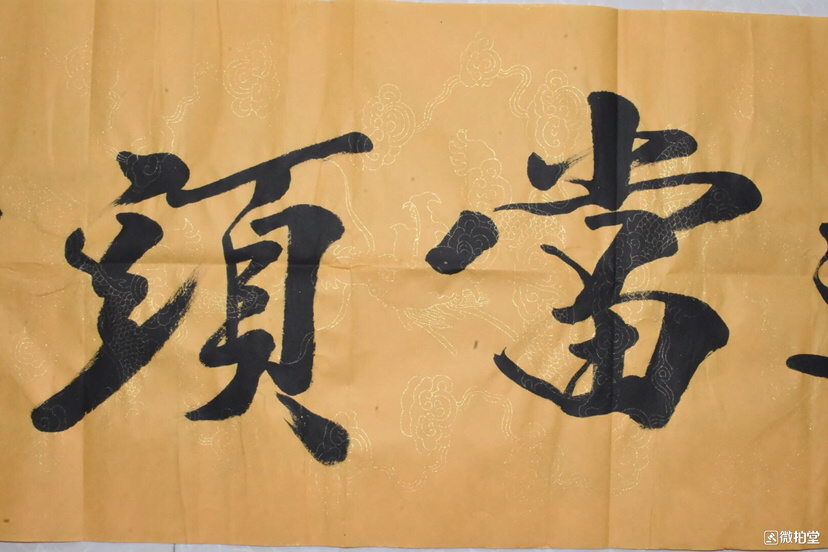 當頭
微拍堂